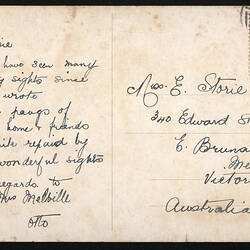 have seen many
sights since
wrote
pangs of
home & friends
repaid by
wonderful sights
regards to
Mrs Melville
Otto
Miss. E. Storie
340 Edward St
E. Bruns
Me
Victor
Australia